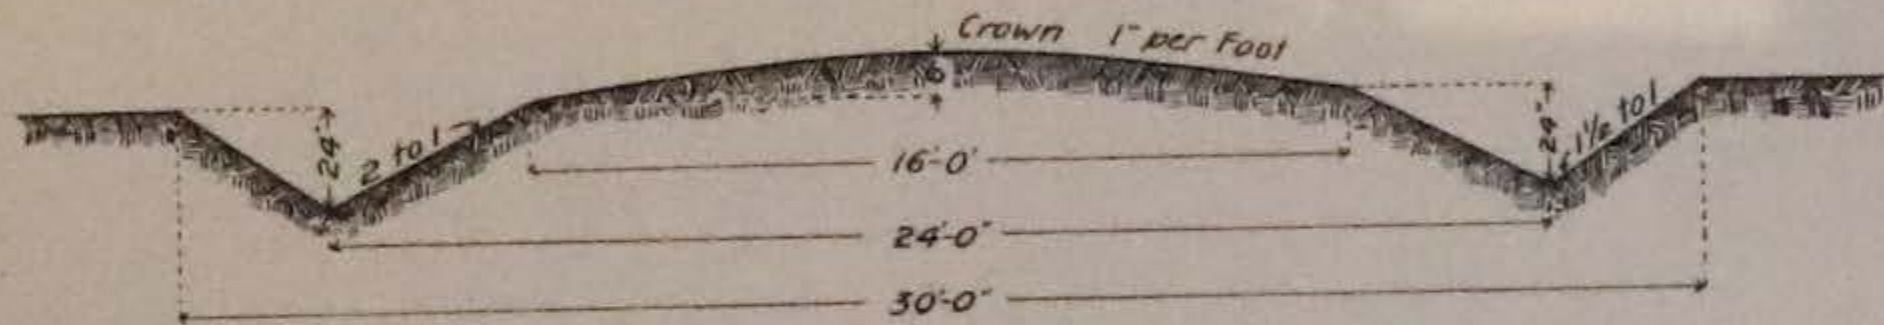 Crown 1" per Foot
6"
24"
2 to 1
16'-0"
24"
1½ to 1
24'-0"
30'-0"